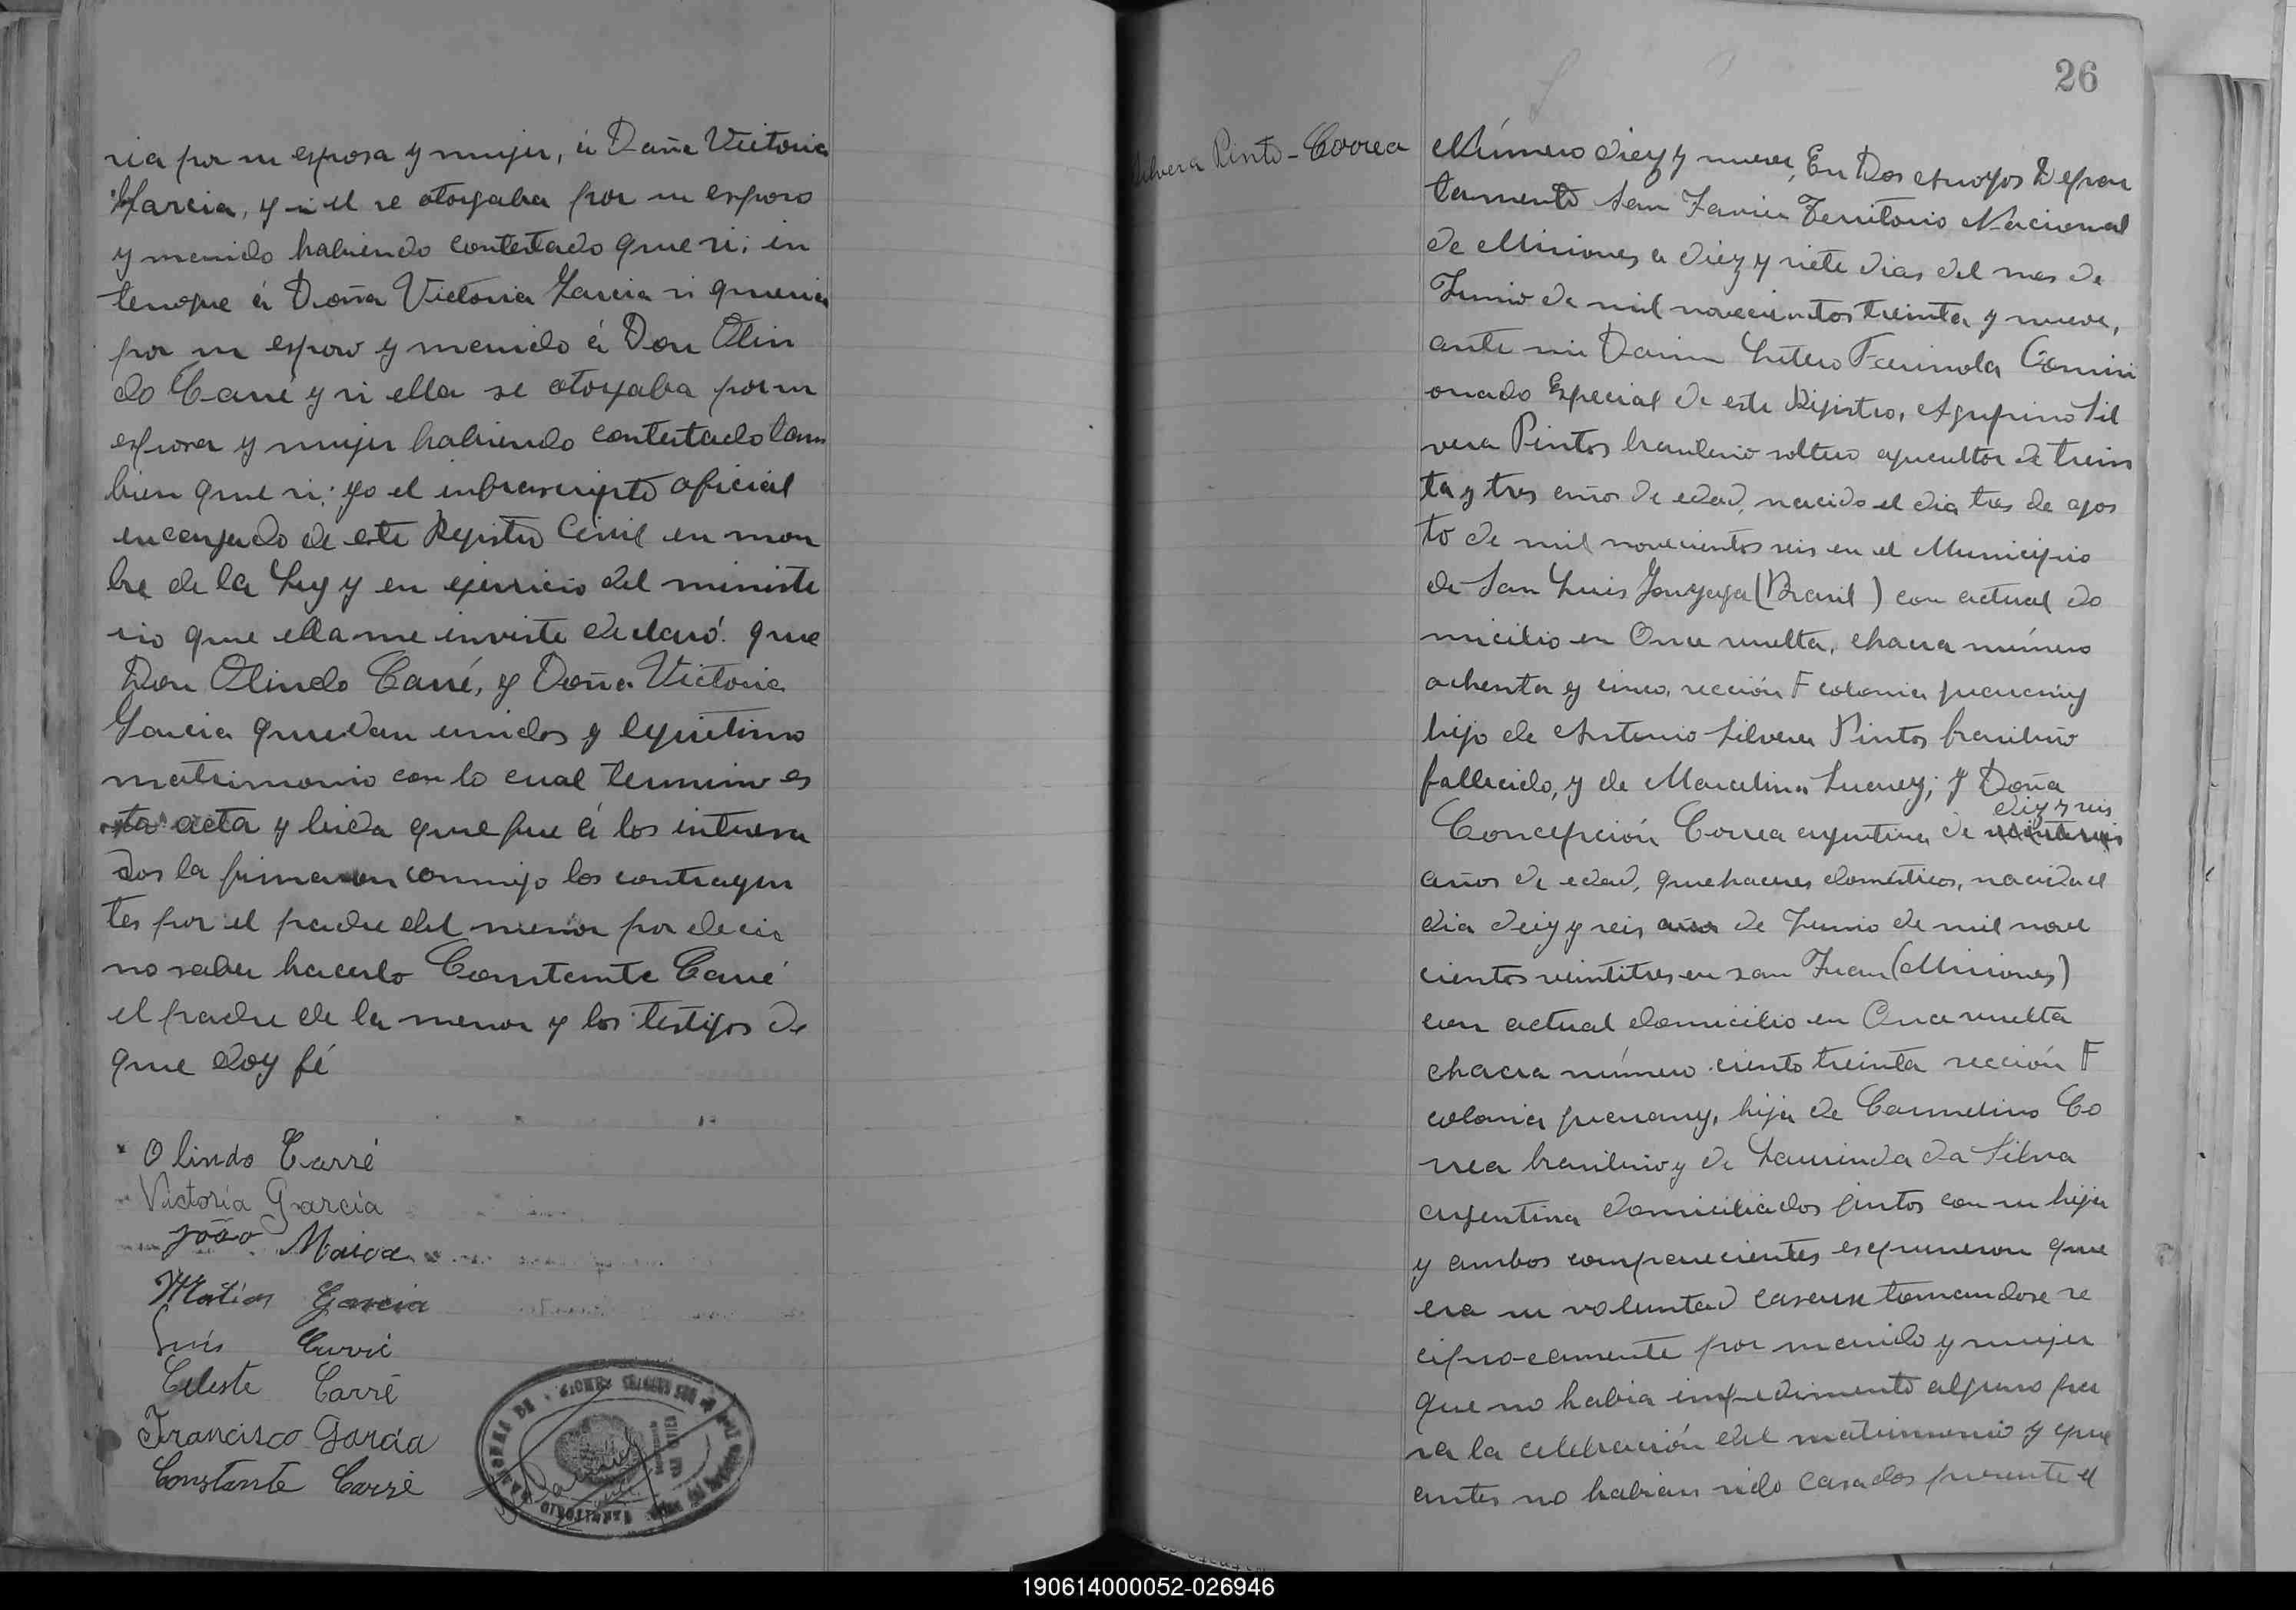 ria por su esposa y mujer, á Doña Victoria
Garcia, y si el se otorgaba por su esposo
y marido habiendo contestado que si; in
terogue á Doña Victoria Garcia si queria
por su esposo y marido á Don Olin
do Carré y si ella se otorgaba por su
esposa y mujer habiendo contestado tam
bien que si; yo el infrascripto oficial
encargado de este Registro Civil en nom
bre de la Ley y en ejercicio del ministe
rio que ella me inviste declaró que
Don Olindo Carré, y Doña Victoria
Garcia quedan unidos y legitimo
matrimonio con lo cual termino es
ta acta y leida que fue á los interesa
dos la firmaron conmigo los contrayen
tes por el padre del menor por decir
no saber hacerlo Constante Carré
el padre de la menor y los testigos de
que doy fé
Olindo Carré
Victoria Garcia
João Maica
Matias Garcia
Luis Carré
Celeste Carré
Francisco Garcia
Constante Carré
26
Silvera Pinto - Correa
Número diez y nueve, En Dos Arroyos Depar
tamento San Javier Territorio Nacional
de Misiones a diez y siete dias del mes de
Junio de mil novecientos treinta y nueve,
ante mi Lutero Farinola Comisi
onado Especial de este Registro, Agripino Sil
vera Pintos brasilero soltero agricultor de trein
ta y tres años de edad, nacido el dia tres de agos
to de mil novecientos seis en el Municipio
de San Luis Gonzaga (Brasil) con actual do
micilio en Once vuelta, chacra número
ochenta y cinco, sección F colonia guarany
hijo de Antonio Silvera Pintos brasilero
fallecido, y de Marcelina Suarez; y Doña
diez y seis
Concepción Correa argentina de
años de edad, quehaceres domésticos, nacida el
dia diez y seis de Junio de mil nove
cientos veintitres en san Juan (Misiones)
con actual domicilio en Once vuelta
chacra número ciento treinta sección F
colonia guarany, hija de Carmelino Co
rrea brasilero y de Laurinda da Silva
argentina domiciliados juntos con su hija
y ambos comparecientes espusieron que
era su voluntad casarse tomandose re
ciprocamente por marido y mujer
que no habia impedimento alguno pa
ra la celebración del matrimonio y que
antes no habian sido casados presente el
190614000052-026946